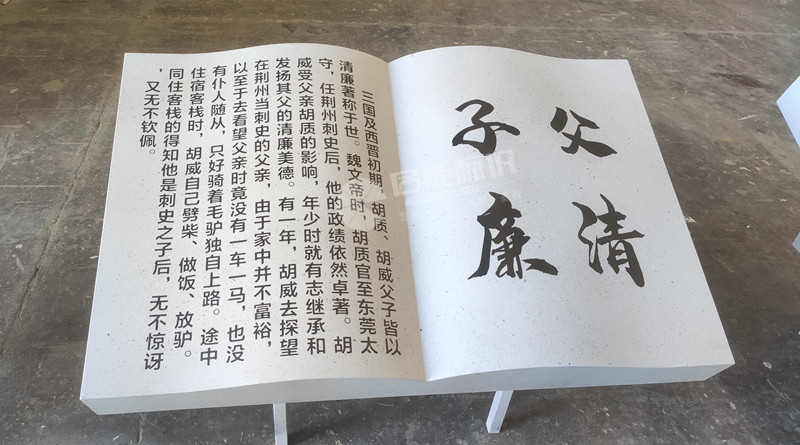 父清
子廉
三国及西晋初期,胡质、胡威父子皆以
清廉著称于世。魏文帝时,胡质官至东莞太
守,任荆州刺史后,他的政绩依然卓著。胡
威受父亲胡质的影响,年少时就有志继承和
发扬其父的清廉美德。有一年,胡威去探望
在荆州当刺史的父亲,由于家中并不富裕,
以至于去看望父亲时竟没有一车一马,也没
有仆人随从,只好骑着毛驴独自上路。途中
住宿客栈时,胡威自己劈柴、做饭、放驴。
同住客栈的得知他是刺史之子后,无不惊讶
,又无不钦佩。